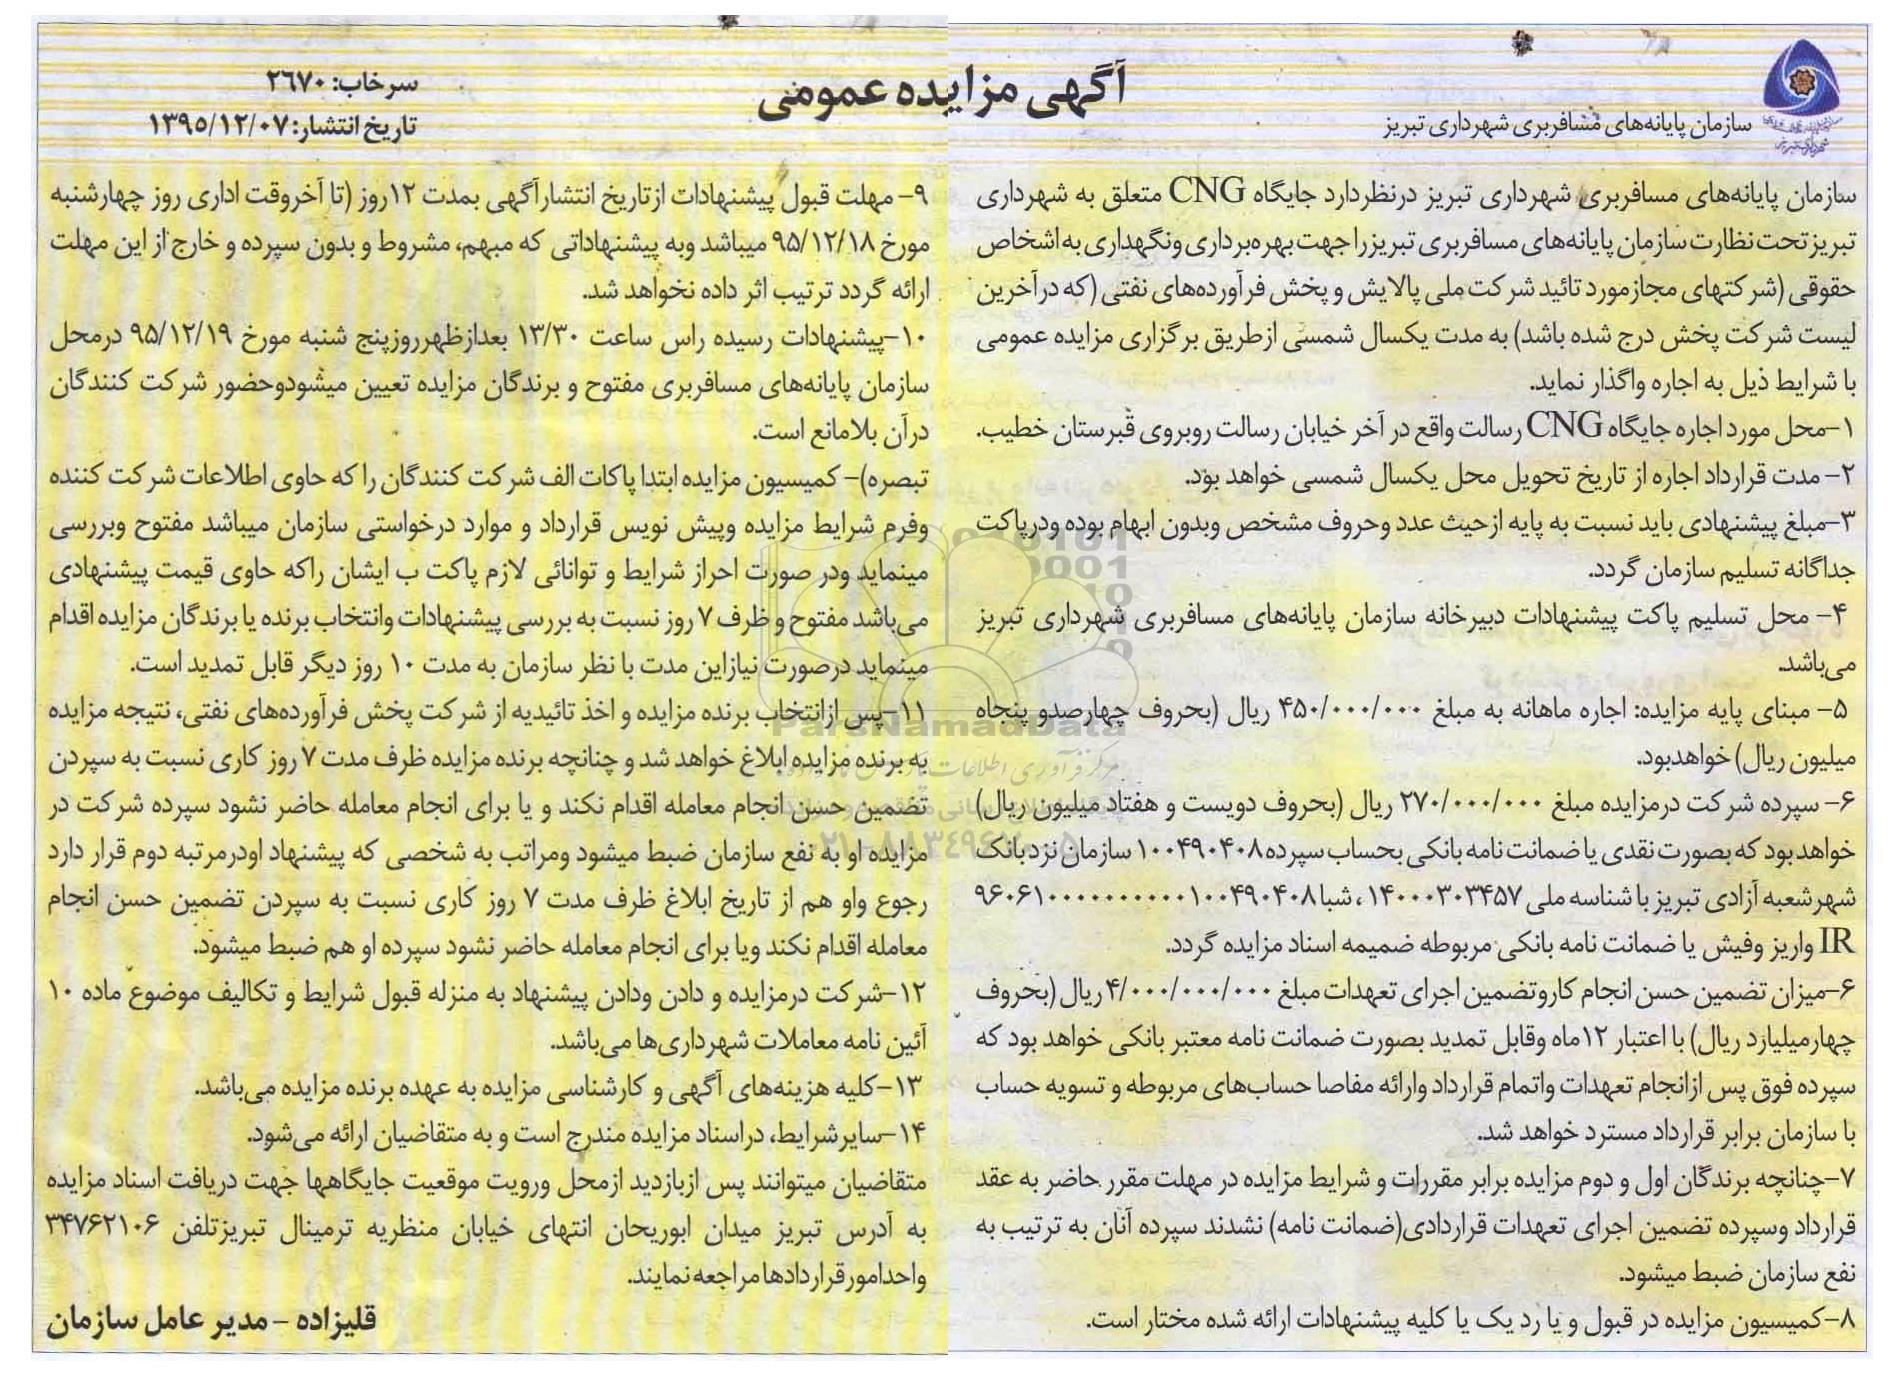 سازمان پایانه‌های مسافربری شهرداری تبریز
آگهی مزایده عمومی
سرخاب: ۲۶۷۰
تاریخ انتشار: ۱۳۹۵/۱۲/۰۷
سازمان پایانه‌های مسافربری شهرداری تبریز درنظردارد جایگاه CNG متعلق به شهرداری
تبریزتحت نظارت سازمان پایانه‌های مسافربری تبریزرا جهت بهره‌برداری ونگهداری به اشخاص
حقوقی (شرکتهای مجازمورد تائید شرکت ملی پالایش و پخش فرآورده‌های نفتی (که درآخرین
لیست شرکت پخش درج شده باشد) به مدت یکسال شمسی ازطریق برگزاری مزایده عمومی
با شرایط ذیل به اجاره واگذار نماید.
۱-محل مورد اجاره جایگاه CNG رسالت واقع در آخر خیابان رسالت روبروی قبرستان خطیب.
۲- مدت قرارداد اجاره از تاریخ تحویل محل یکسال شمسی خواهد بود.
۳-مبلغ پیشنهادی باید نسبت به پایه ازحیث عدد وحروف مشخص وبدون ابهام بوده ودرپاکت
جداگانه تسلیم سازمان گردد.
۴- محل تسلیم پاکت پیشنهادات دبیرخانه سازمان پایانه‌های مسافربری شهرداری تبریز
می‌باشد.
۵- مبنای پایه مزایده: اجاره ماهانه به مبلغ ۴۵۰/۰۰۰/۰۰۰ ریال (بحروف چهارصدو پنجاه
میلیون ریال) خواهدبود.
۶- سپرده شرکت درمزایده مبلغ ۲۷۰/۰۰۰/۰۰۰ ریال (بحروف دویست و هفتاد میلیون ریال)
خواهد بود که بصورت نقدی یا ضمانت نامه بانکی بحساب سپرده ۱۰۰۴۹۰۴۰۸ سازمان نزد بانک
شهرشعبه آزادی تبریز با شناسه ملی ۱۴۰۰۰۳۰۳۴۵۷ ، شبا ۹۶۰۶۱۰۰۰۰۰۰۰۰۰۰۰۱۰۰۴۹۰۴۰۸
IR واریز وفیش یا ضمانت نامه بانکی مربوطه ضمیمه اسناد مزایده گردد.
۶-میزان تضمین حسن انجام کاروتضمین اجرای تعهدات مبلغ ۴/۰۰۰/۰۰۰/۰۰۰ ریال (بحروف
چهارمیلیازد ریال) با اعتبار ۱۲ماه وقابل تمدید بصورت ضمانت نامه معتبر بانکی خواهد بود که
سپرده فوق پس ازانجام تعهدات واتمام قرارداد وارائه مفاصا حساب‌های مربوطه و تسویه حساب
با سازمان برابر قرارداد مسترد خواهد شد.
۷-چنانچه برندگان اول و دوم مزایده برابر مقررات و شرایط مزایده در مهلت مقرر حاضر به عقد
قرارداد وسپرده تضمین اجرای تعهدات قراردادی(ضمانت نامه) نشدند سپرده آنان به ترتیب به
نفع سازمان ضبط میشود.
۸-کمیسیون مزایده در قبول و یا رد یک یا کلیه پیشنهادات ارائه شده مختار است.
۹- مهلت قبول پیشنهادات ازتاریخ انتشارآگهی بمدت ۱۲روز (تا آخروقت اداری روز چهارشنبه
مورخ ۹۵/۱۲/۱۸ میباشد وبه پیشنهاداتی که مبهم، مشروط و بدون سپرده و خارج از این مهلت
ارائه گردد ترتیب اثر داده نخواهد شد.
۱۰-پیشنهادات رسیده راس ساعت ۱۳/۳۰ بعدازظهرروزپنج شنبه مورخ ۹۵/۱۲/۱۹ درمحل
سازمان پایانه‌های مسافربری مفتوح و برندگان مزایده تعیین میشودوحضور شرکت کنندگان
درآن بلامانع است.
تبصره)- کمیسیون مزایده ابتدا پاکات الف شرکت کنندگان را که حاوی اطلاعات شرکت کننده
وفرم شرایط مزایده وپیش نویس قرارداد و موارد درخواستی سازمان میباشد مفتوح وبررسی
مینماید ودر صورت احراز شرایط و توانائی لازم پاکت ب ایشان راکه حاوی قیمت پیشنهادی
می‌باشد مفتوح و ظرف ۷ روز نسبت به بررسی پیشنهادات وانتخاب برنده یا برندگان مزایده اقدام
مینماید درصورت نیازاین مدت با نظر سازمان به مدت ۱۰ روز دیگر قابل تمدید است.
۱۱-پس ازانتخاب برنده مزایده و اخذ تائیدیه از شرکت پخش فرآورده‌های نفتی، نتیجه مزایده
به برنده مزایده ابلاغ خواهد شد و چنانچه برنده مزایده ظرف مدت ۷ روز کاری نسبت به سپردن
تضمین حسن انجام معامله اقدام نکند و یا برای انجام معامله حاضر نشود سپرده شرکت در
مزایده او به نفع سازمان ضبط میشود ومراتب به شخصی که پیشنهاد اودرمرتبه دوم قرار دارد
رجوع واو هم از تاریخ ابلاغ ظرف مدت ۷ روز کاری نسبت به سپردن تضمین حسن انجام
معامله اقدام نکند ویا برای انجام معامله حاضر نشود سپرده او هم ضبط میشود.
۱۲-شرکت درمزایده و دادن ودادن پیشنهاد به منزله قبول شرایط و تکالیف موضوع ماده ۱۰
آئین نامه معاملات شهرداری‌ها می‌باشد.
۱۳-کلیه هزینه‌های آگهی و کارشناسی مزایده به عهده برنده مزایده می‌باشد.
۱۴-سایرشرایط، دراسناد مزایده مندرج است و به متقاضیان ارائه می‌شود.
متقاضیان میتوانند پس ازبازدید ازمحل ورویت موقعیت جایگاهها جهت دریافت اسناد مزایده
به آدرس تبریز میدان ابوریحان انتهای خیابان منظریه ترمینال تبریزتلفن ۳۴۷۶۲۱۰۶
واحدامورقراردادها مراجعه نمایند.
قلیزاده - مدیر عامل سازمان
ParsNamadData